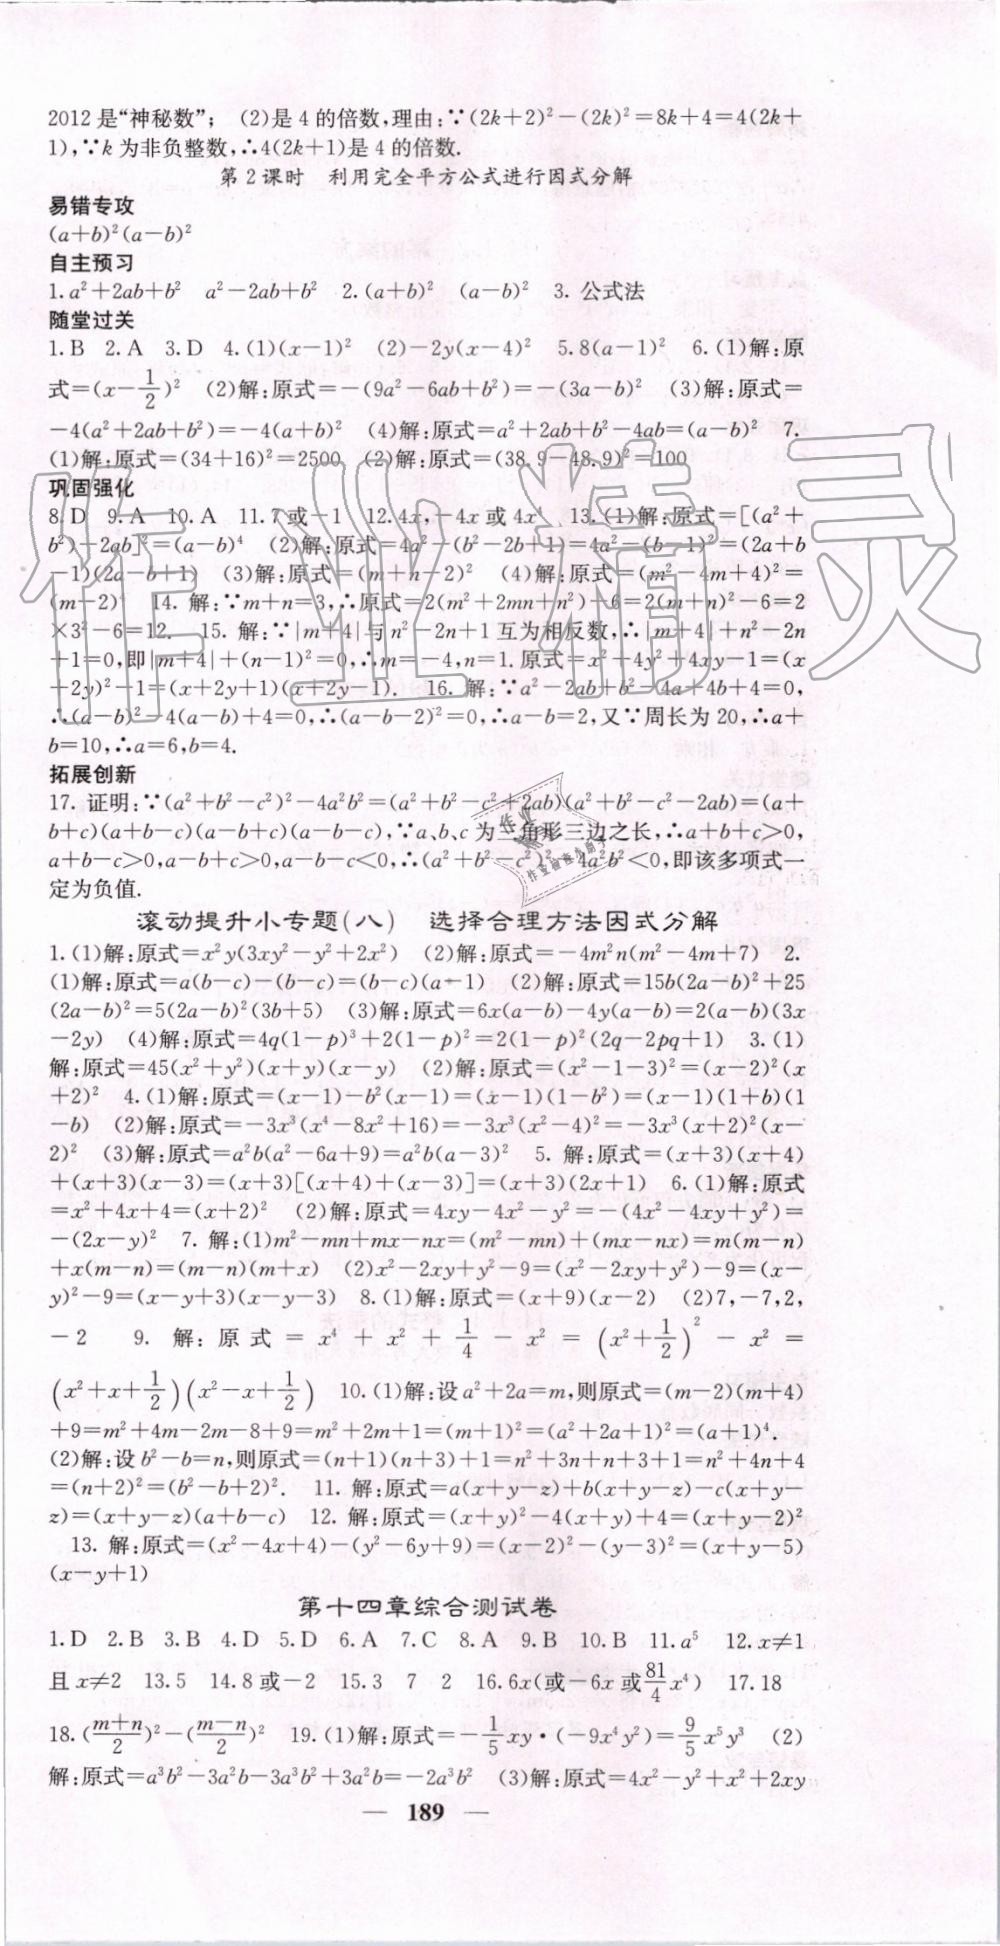 2012是“神秘数”； (2)是4的倍数,理由:∵(2k+2)²-(2k)²=8k+4=4(2k+
1),∵k为非负整数,∴4(2k+1)是4的倍数.
第2课时 利用完全平方公式进行因式分解
易错专攻
(a+b)²(a-b)²
自主预习
1.a²+2ab+b² a²-2ab+b² 2.(a+b)² (a-b)² 3. 公式法
随堂过关
1.B 2.A 3.D 4.(1)(x-1)² (2)-2y(x-4)² 5.8(a-1)² 6.(1)解:原
式=(x-1/2)² (2)解:原式=-(9a²-6ab+b²)=-(3a-b)² (3)解:原式=
-4(a²+2ab+b²)=-4(a+b)² (4)解:原式=a²+2ab+b²-4ab=(a-b)² 7.
(1)解:原式=(34+16)²=2500 (2)解:原式=(38.9-48.9)²=100
巩固强化
8.D 9.A 10.A 11.7或-1 12.4x,-4x或4x⁴ 13.(1)解:原式=[(a²+
b²)-2ab]²=(a-b)⁴ (2)解:原式=4a²-(b²-2b+1)=4a²-(b-1)²=(2a+b
-1)(2a-b+1) (3)解:原式=(m+n-2)² (4)解:原式=(m²-4m+4)²=
(m-2)⁴ 14. 解:∵m+n=3,∴原式=2(m²+2mn+n²)-6=2(m+n)²-6=2
×3²-6=12. 15. 解:∵|m+4|与n²-2n+1互为相反数,∴|m+4|+n²-2n
+1=0,即|m+4|+(n-1)²=0,∴m=-4,n=1.原式=x²+4y²+4xy-1=(x
+2y)²-1=(x+2y+1)(x+2y-1). 16. 解:∵a²-2ab+b²-4a+4b+4=0,
∴(a-b)²-4(a-b)+4=0,∴(a-b-2)²=0,∴a-b=2,又∵周长为20,∴a+
b=10,∴a=6,b=4.
拓展创新
17. 证明:∵(a²+b²-c²)²-4a²b²=(a²+b²-c²+2ab)(a²+b²-c²-2ab)=(a+
b+c)(a+b-c)(a-b+c)(a-b-c),∵a、b、c为三角形三边之长,∴a+b+c>0,
a+b-c>0,a-b+c>0,a-b-c<0,∴(a²+b²-c²)²-4a²b²<0,即该多项式一
定为负值.
滚动提升小专题(八) 选择合理方法因式分解
1.(1)解:原式=x²y(3xy²-y²+2x²) (2)解:原式=-4m²n(m²-4m+7) 2.
(1)解:原式=a(b-c)-(b-c)=(b-c)(a-1) (2)解:原式=15b(2a-b)²+25
(2a-b)²=5(2a-b)²(3b+5) (3)解:原式=6x(a-b)-4y(a-b)=2(a-b)(3x
-2y) (4)解:原式=4q(1-p)³+2(1-p)²=2(1-p)²(2q-2pq+1) 3.(1)
解:原式=45(x²+y²)(x+y)(x-y) (2)解:原式=(x²-1-3)²=(x-2)²(x
+2)² 4.(1)解:原式=(x-1)-b²(x-1)=(x-1)(1-b²)=(x-1)(1+b)(1
-b) (2)解:原式=-3x³(x⁴-8x²+16)=-3x³(x²-4)²=-3x³(x+2)²(x-
2)² (3)解:原式=a²b(a²-6a+9)=a²b(a-3)² 5. 解:原式=(x+3)(x+4)
+(x+3)(x-3)=(x+3)[(x+4)+(x-3)]=(x+3)(2x+1) 6.(1)解:原式
=x²+4x+4=(x+2)² (2)解:原式=4xy-4x²-y²=-(4x²-4xy+y²)=
-(2x-y)² 7. 解:(1)m²-mn+mx-nx=(m²-mn)+(mx-nx)=m(m-n)
+x(m-n)=(m-n)(m+x) (2)x²-2xy+y²-9=(x²-2xy+y²)-9=(x-
y)²-9=(x-y+3)(x-y-3) 8.(1)解:原式=(x+9)(x-2) (2)7,-7,2,
-2 9. 解:原式=x⁴+x²+1/4-x²=(x²+1/2)²-x²=
(x²+x+1/2)(x²-x+1/2) 10.(1)解:设a²+2a=m,则原式=(m-2)(m+4)
+9=m²+4m-2m-8+9=m²+2m+1=(m+1)²=(a²+2a+1)²=(a+1)⁴.
(2)解:设b²-b=n,则原式=(n+1)(n+3)+1=n²+3n+n+3+1=n²+4n+4
=(n+2)²=(b²-b+2)². 11. 解:原式=a(x+y-z)+b(x+y-z)-c(x+y-
z)=(x+y-z)(a+b-c) 12. 解:原式=(x+y)²-4(x+y)+4=(x+y-2)²
13. 解:原式=(x²-4x+4)-(y²-6y+9)=(x-2)²-(y-3)²=(x+y-5)
(x-y+1)
第十四章综合测试卷
1.D 2.B 3.B 4.D 5.D 6.A 7.C 8.A 9.B 10.B 11.a⁵ 12.x≠1
且x≠2 13.5 14.8或-2 15.3 7 2 16.6x(或-6x或81/4x⁴) 17.18
18.(m+n/2)²-(m-n/2)² 19.(1)解:原式=-1/5xy·(-9x⁴y²)=9/5x⁵y³ (2)
解:原式=a³b²-3a²b-3a³b²+3a²b=-2a³b² (3)解:原式=4x²-y²+x²+2xy
— 189 —
作业精灵